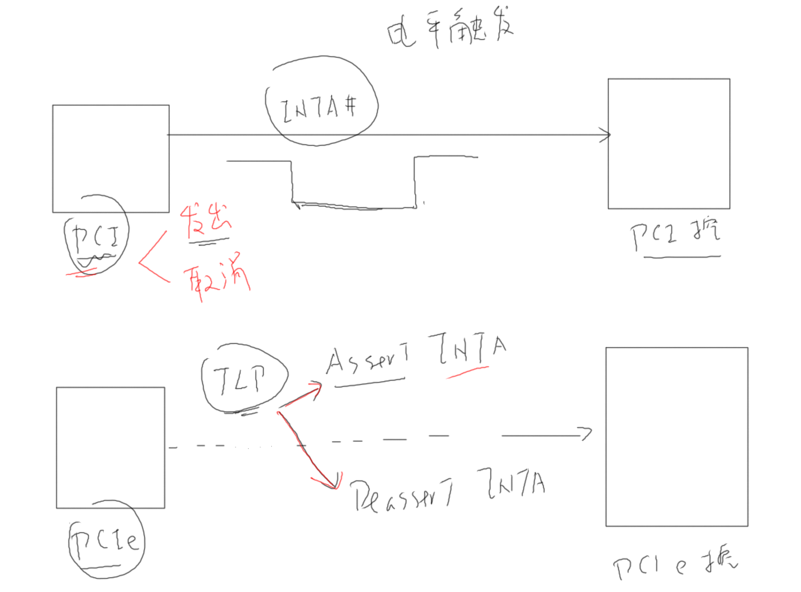 电平触发
INTA#
PCI
发出
取消
PCI 控
TLP
Assert INTA
Deassert INTA
PCIe
PCIe 控